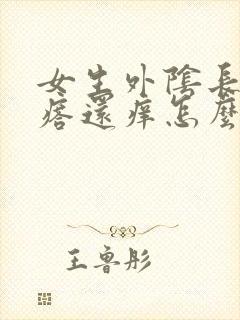 女生外陰長
瘩還痒怎麼
王魯彤